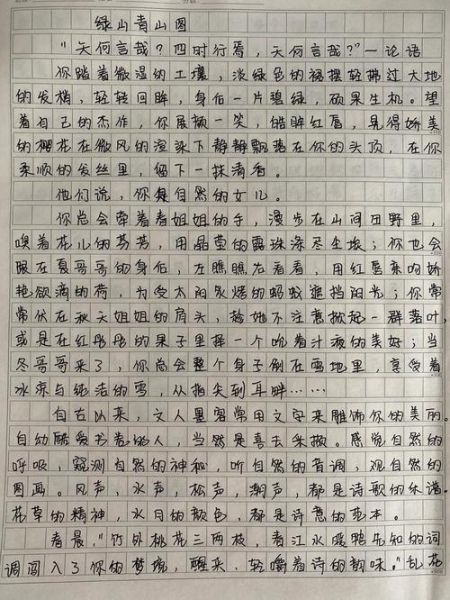 绿山青山图
"天何言哉?四时行焉,天何言哉?"—论语
你踏着微湿的土壤,淡绿色的裙摆轻拂过大地
的发梢,轻轻回眸,身后一片碧绿,硕果生机。望
着自己的杰作,你展颜一笑,皓眸红唇,晃得娇美
的樱花在微风的渲染下静静飘落在你的头顶,在你
柔顺的发丝里,留下一抹清香。
他们说,你是自然的女儿。
你总会牵着春姐姐的手,漫步在山间田野里,
嗅着花儿的芬芳,用晶莹的露珠涤尽尘埃;你也会
跟在夏哥哥的身后,左瞧瞧右看看,用红唇来吻娇
艳欲滴的荷,为受太阳炙烤的蚂蚁遮挡阳光;你常
常伏在秋天姐姐的肩头,趁她不注意掀起一群落叶,
或是在红彤彤的果子里择一个吮着汁液的美好;当
冬哥哥来了,你总会整个身子倒在雪地里,享受着
冰凉与纯洁的雪,从指尖到耳畔……
自古以来,文人墨客常用文字来雕饰你的美丽。
自幼酷爱书卷的人,当然是喜去采撷。感觉自然的
呼吸,窥测自然的神和,听自然的音调,观自然的
图画。风声,水声,松声,潮声,都是诗歌的乐谱。
花草的精神,水月的颜色,都是诗意的范本。
春晨,"竹外桃花三两枝,春江水暖鸭先知的词
调闯入了你的梦境,醒来,轻嚼着诗的韵味。"乱花